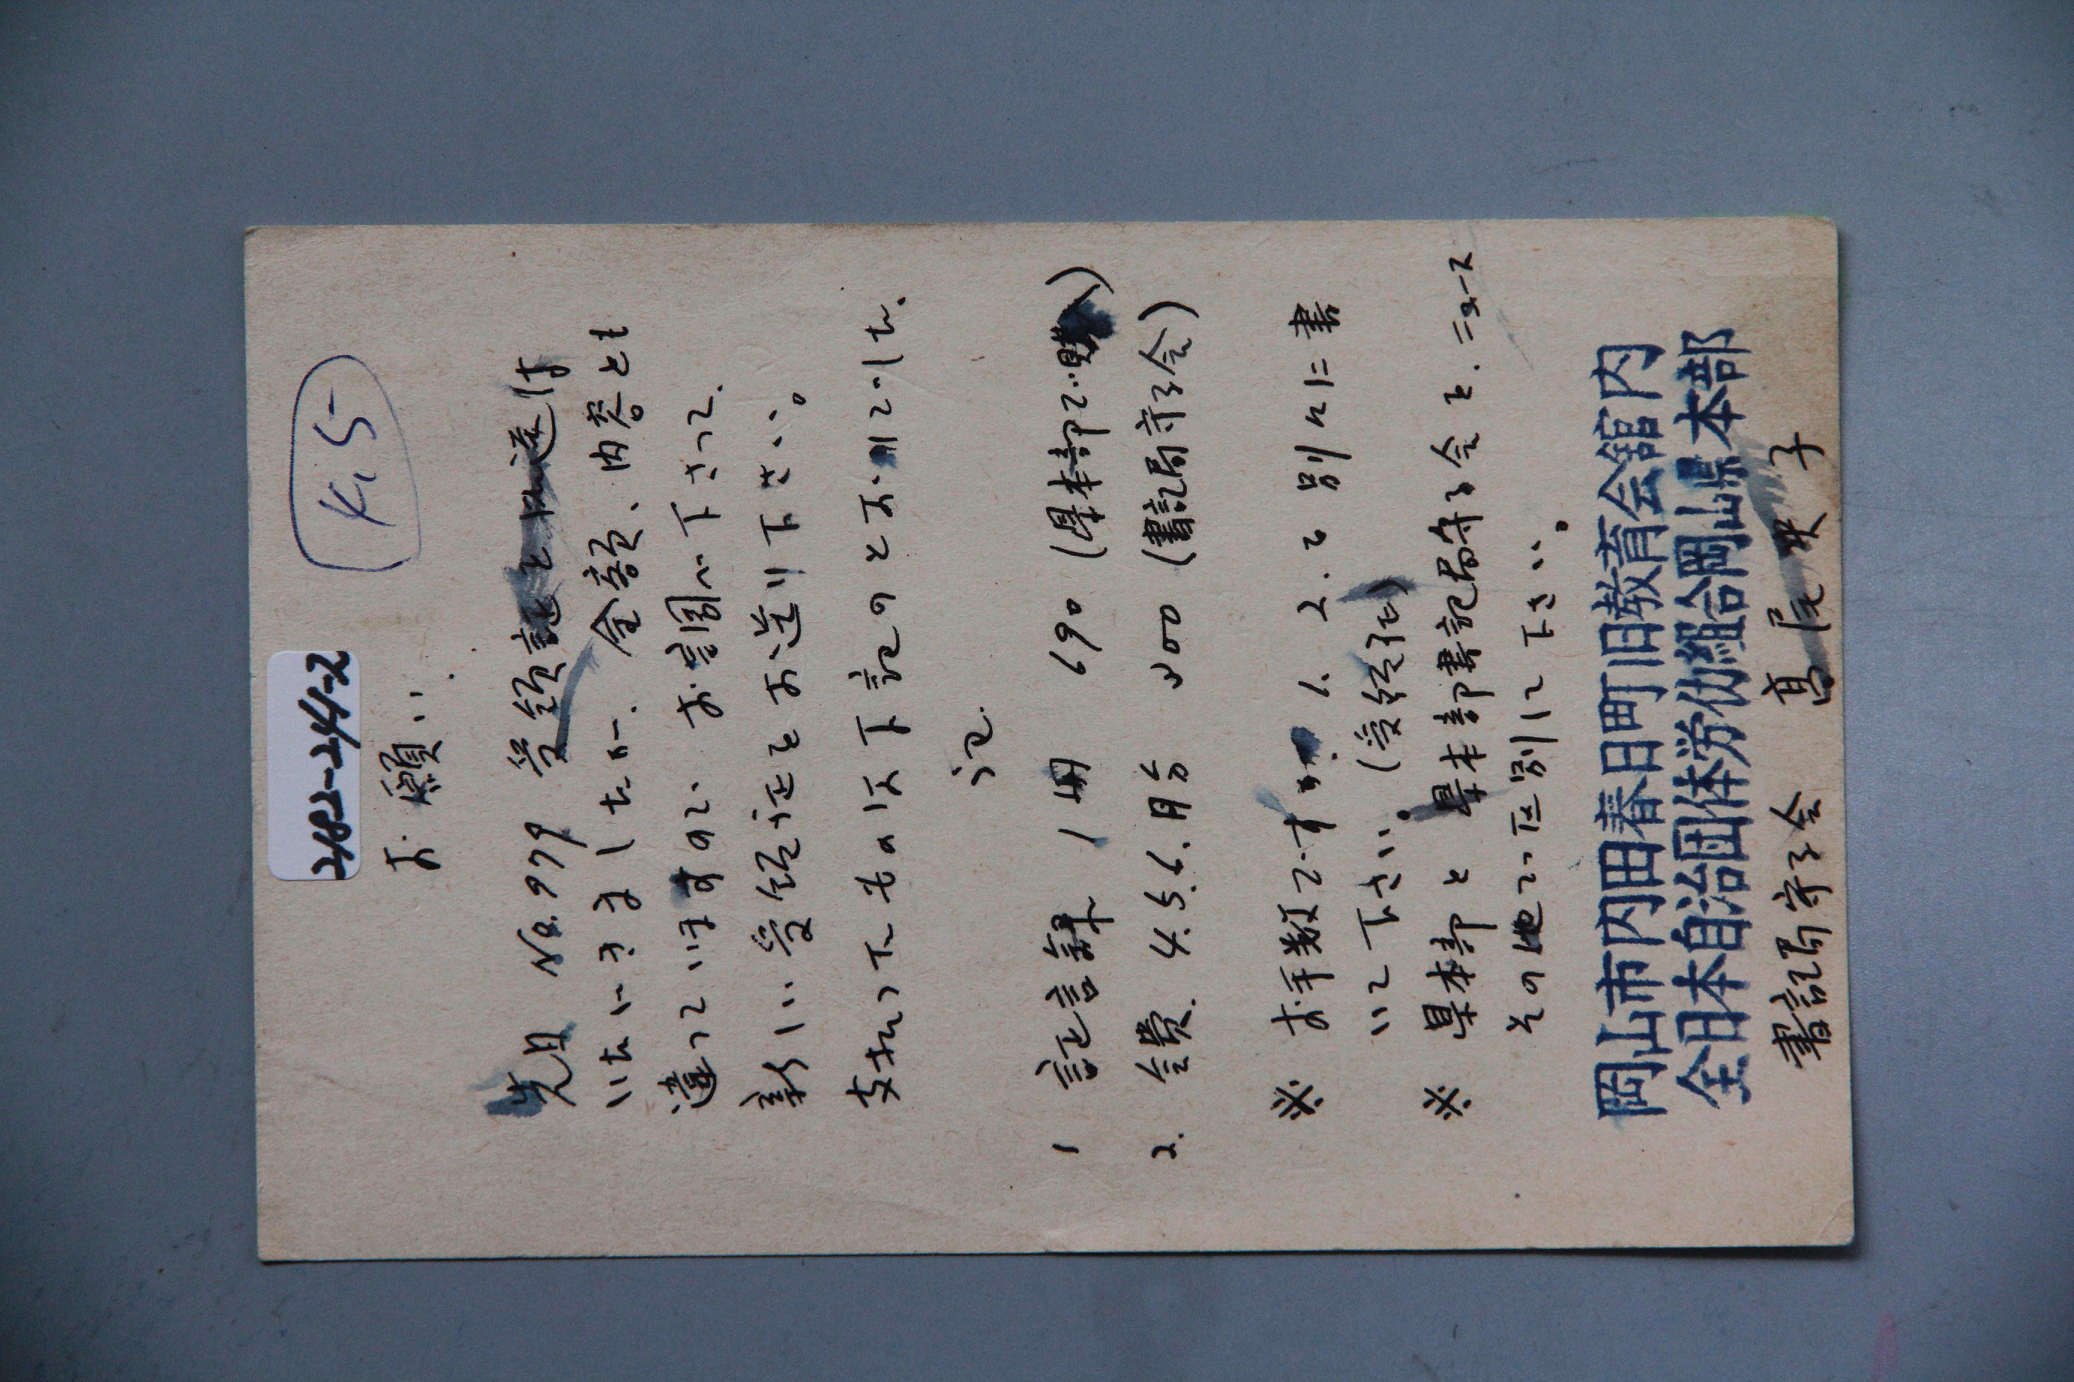 2482-244-2
K,5
お願い.
先日 No.979 受領証を御送付
いただきましたが、金額、内容とも
違っていますので、お調べ下さって、
新しい受領証をお送り下さい。
支払ったものは下記のとおりでした.
記.
1 証言録 1冊 690 (県本部で購入)
2. 会費. 4.5.6.月分 (書記局守る会)
※ お手数ですが. 1. 2. を別々に書
いて下さい. (受領証)
※ 県本部と県本部書記局守る会と.ニュース
その他で区別して下さい。
岡山市内田春日町旧教育会舘内
全日本自治団体労仂組合岡山県本部
書記局守る会 高尾 子